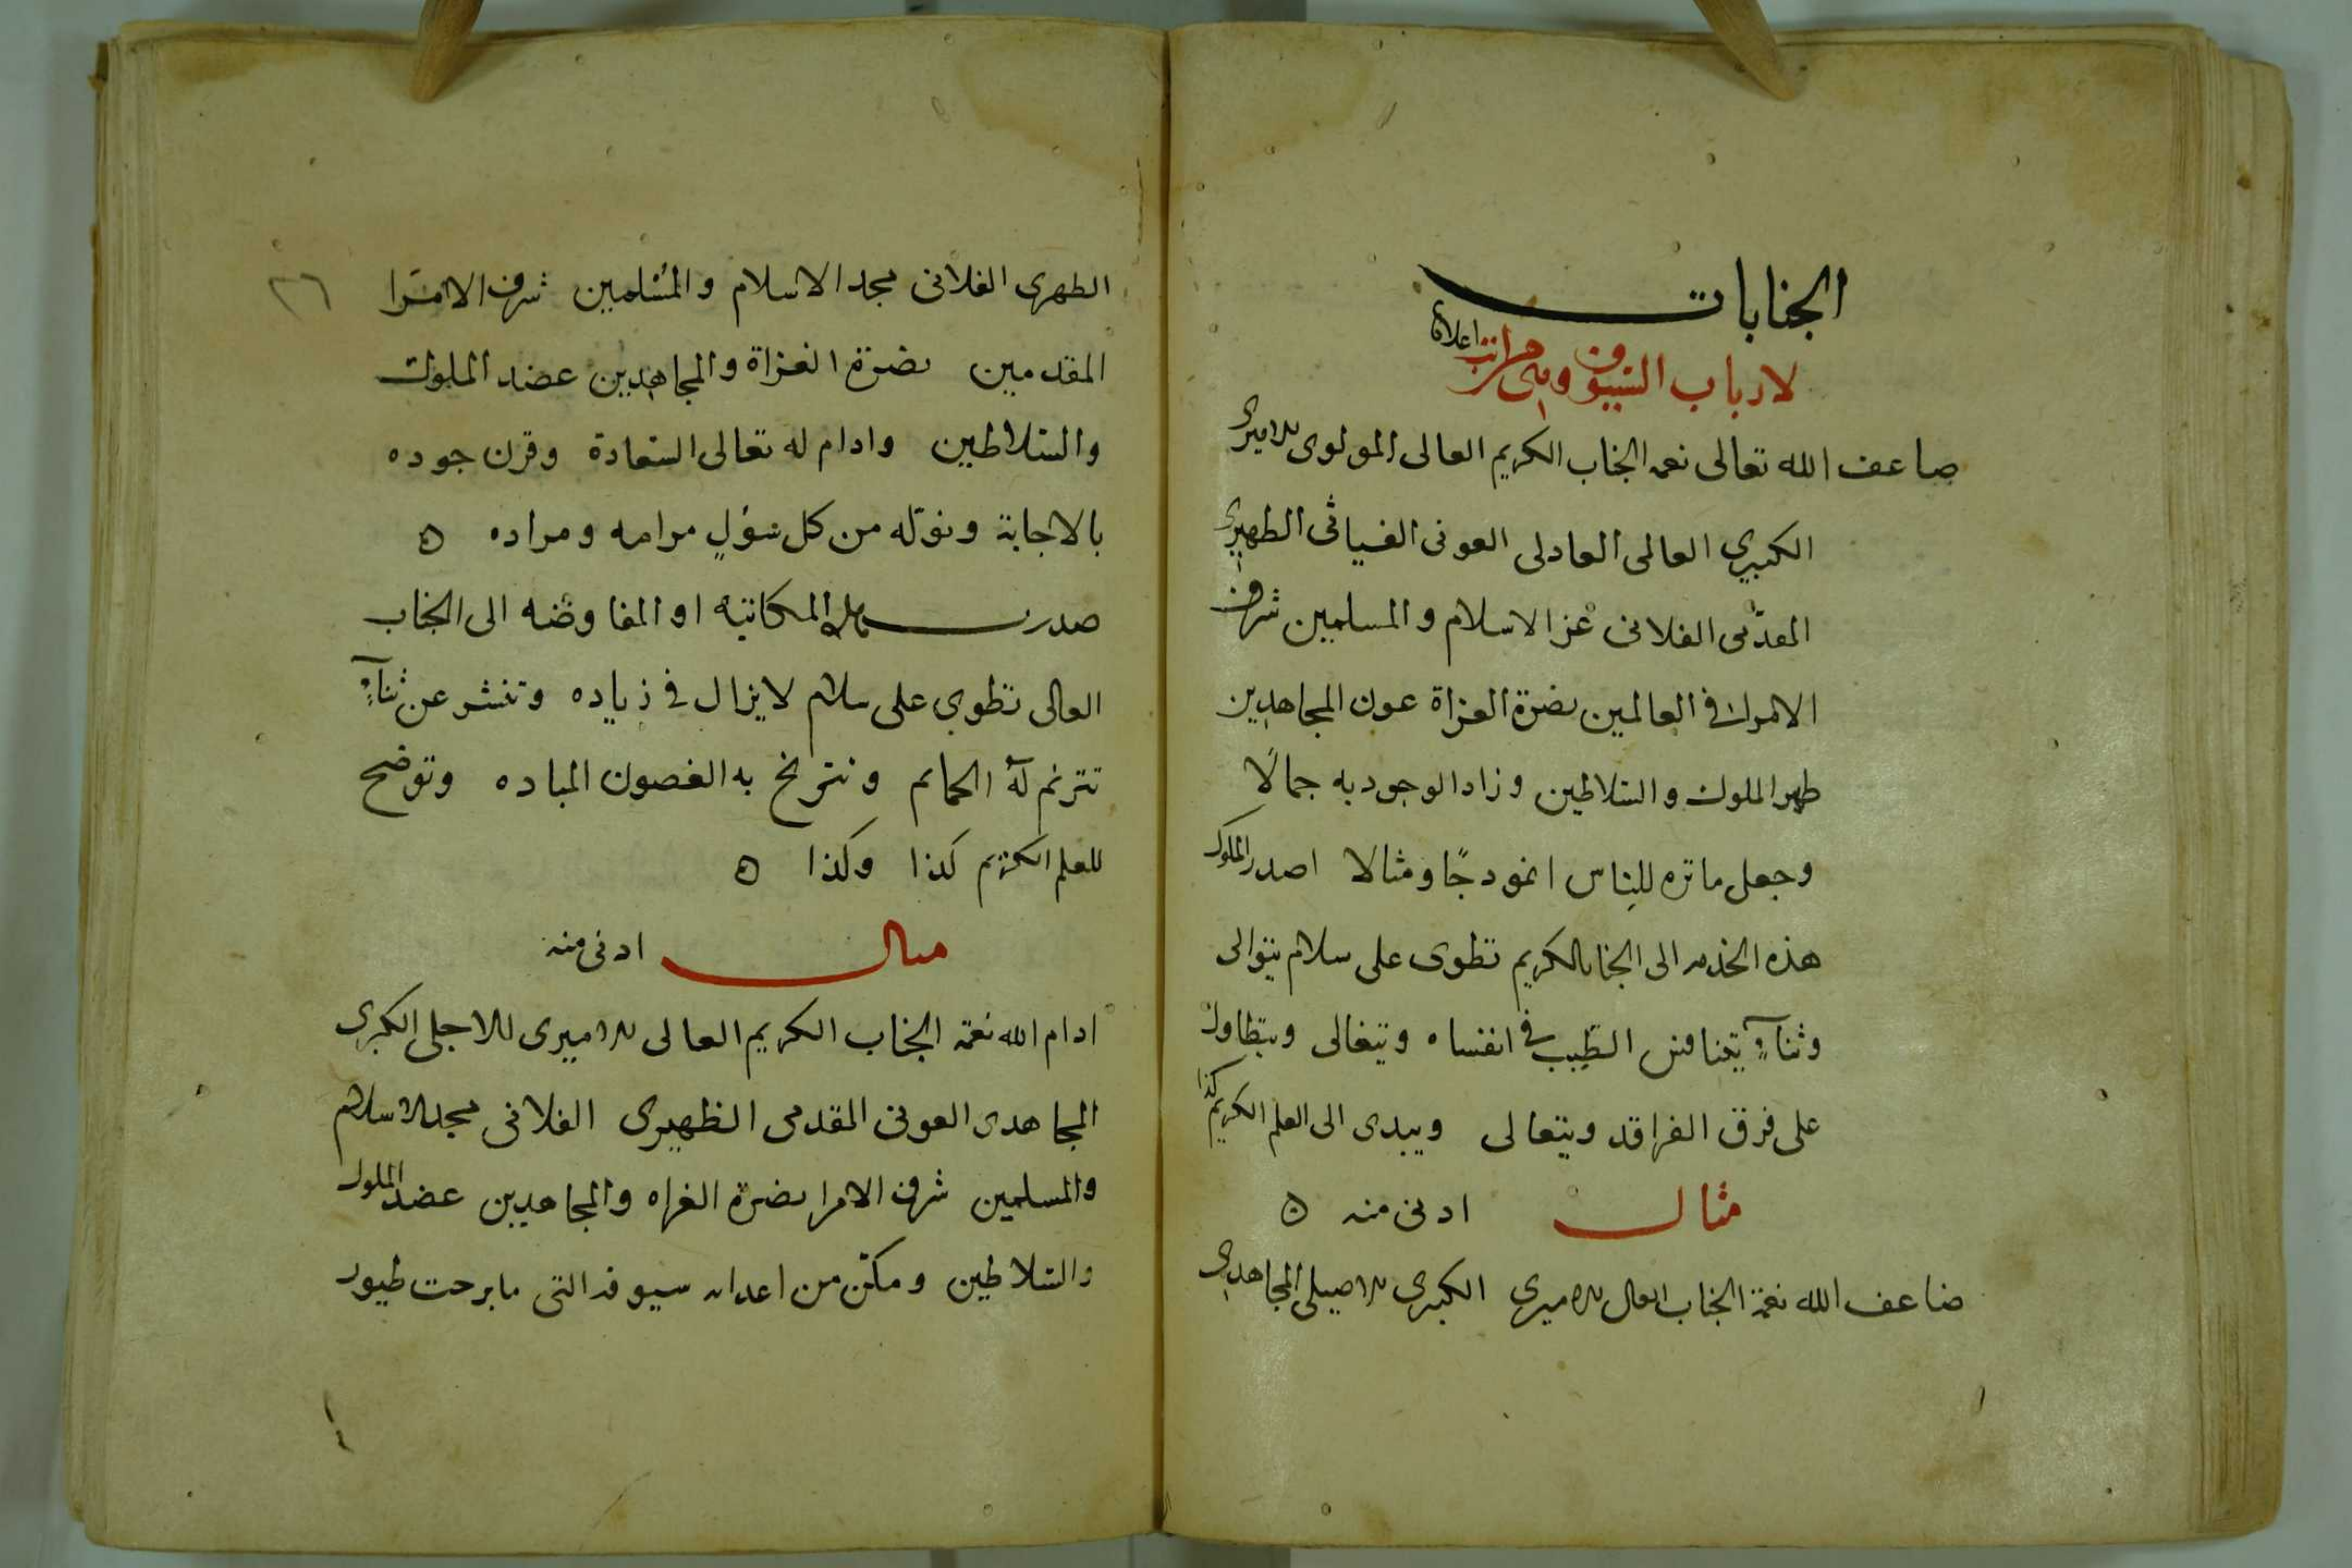 الجنابات
لارباب السيوف وهى مراتب اعلاها
ضاعف الله تعالى نعمه الجناب الكريم العالى المولوى الاميرى
الكبيرى العالمى العادلى العونى الغياثى الظهيرى
المقدمى الفلانى عز الاسلام والمسلمين شرف
الامراء فى العالمين نصرة الغزاة عون المجاهدين
ظهير الملوك والسلاطين وزاد الوجود به جمالًا
وجعل ماثره للناس انموذجًا ومثالا اصدر المملوك
هذه الخدمه الى الجناب الكريم تطوى على سلام يتوالى
وثناءٍ يتنافس الطيب فى انفساه ويتغالى ويتطاول
على فرق الفراقد ويتعالى ويبدى الى العلم الكريم كذا
مثال ادنى منه ه
ضاعف الله نعمة الجناب العالى الاميرى الكبيرى الاصيلى المجاهدى
٢٦
الظهيرى الفلانى مجد الاسلام والمسلمين شرف الامرا
المقدمين نصرة الغزاة والمجاهدين عضد الملوك
والسلاطين وادام له تعالى السعادة وقرن جوده
بالاجابة ونوّله من كل سؤلٍ مرامه ومراده ه
صدرت هذه المكاتبة او المفاوضه الى الجناب
العالى تطوي على سلام لا يزال فى زياده وتنشر عن ثناءٍ
تترنم له الحمائم وتترنح به الغصون المياده وتوضح
للعلم الكريم كذا وكذا ه
مثال ادنى منه
ادام الله نعمة الجناب الكريم العالى الاميرى الاجلى الكبيرى
المجاهدى العونى المقدمى الظهيرى الفلانى مجد الاسلام
والمسلمين شرف الامرا نصرة الغزاه والمجاهدين عضد الملوك
والسلاطين ومكّن من اعدائه سيوفه التى ما برحت طيور